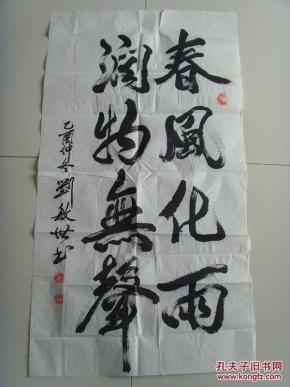 春風化雨
潤物無聲
乙酉仲冬劉敏書
孔夫子旧书网